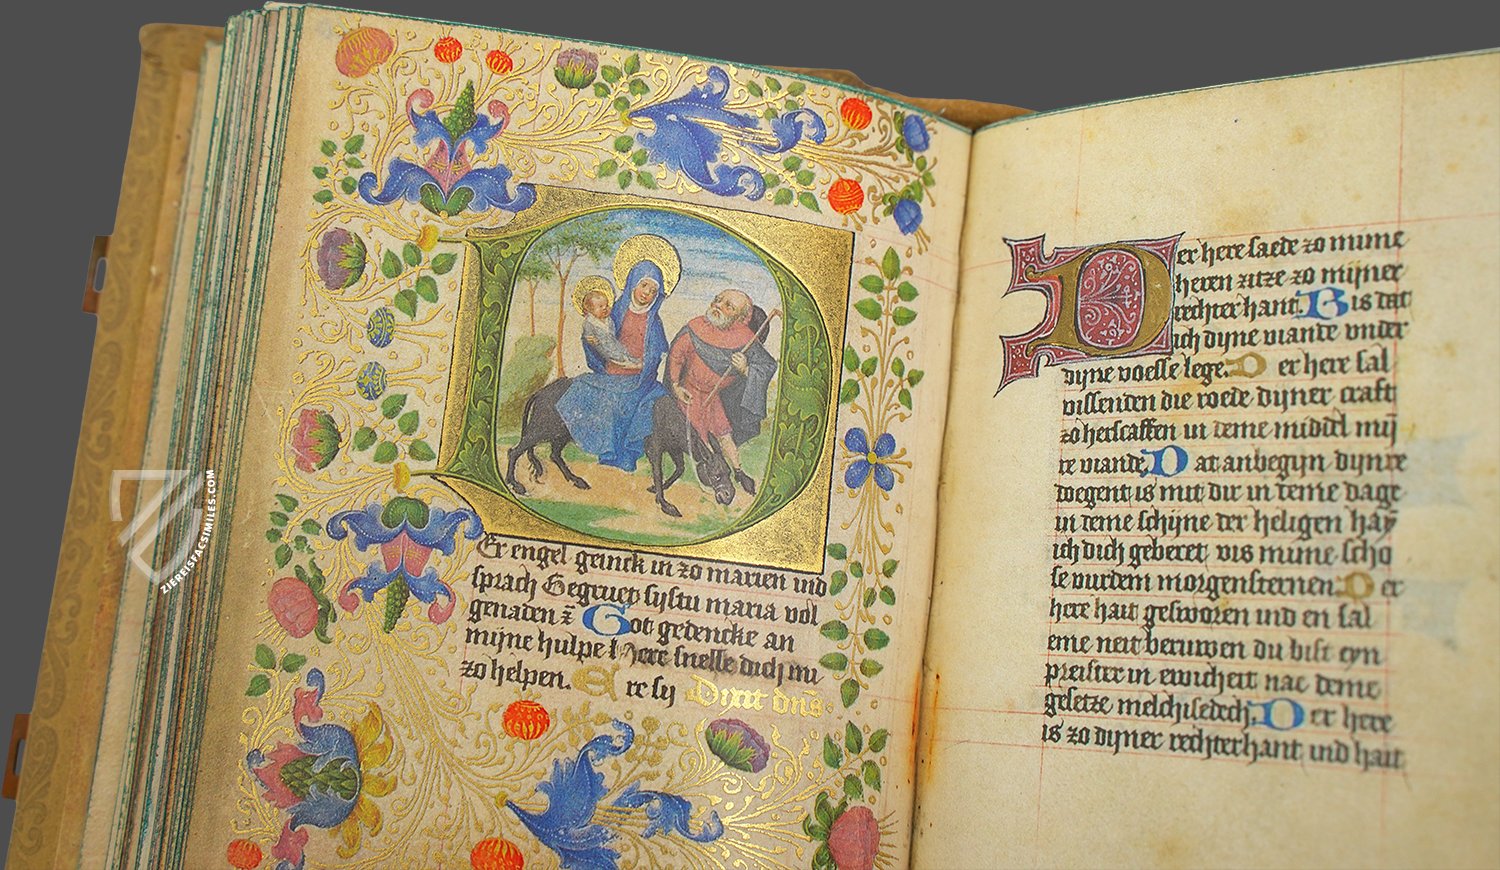 Er engel geinck in zo marien ind
sprach Gegruet sijstu maria vol
genaden z̄ Got gedencke an
mijne hulpe here snelle dich mi
zo helpen. Ere sij Dixit dn̄s
Der here saede zo mime
heren zitze zo mijner
rechter hant. Bis dat
ich dijne viande vnder
dijne voesse lege. Der here sal
vissenden die roede dijner craft
zo herscaffen in deme middel mij
re viande, Dat anbegijn dijnre
doegent is mit dir in deme dage
in deme schijne der heligen hay
ich dich geberet vis mime scho
se vurdem morgensternen. Der
here hait gesworen ind en sal
eme neit beruwen du bist eyn
preister in ewicheit nae deme
gesetze melchisedech, Der here
is zo dijner rechterhant ind hait
ZIEREISFACSIMILES.COM